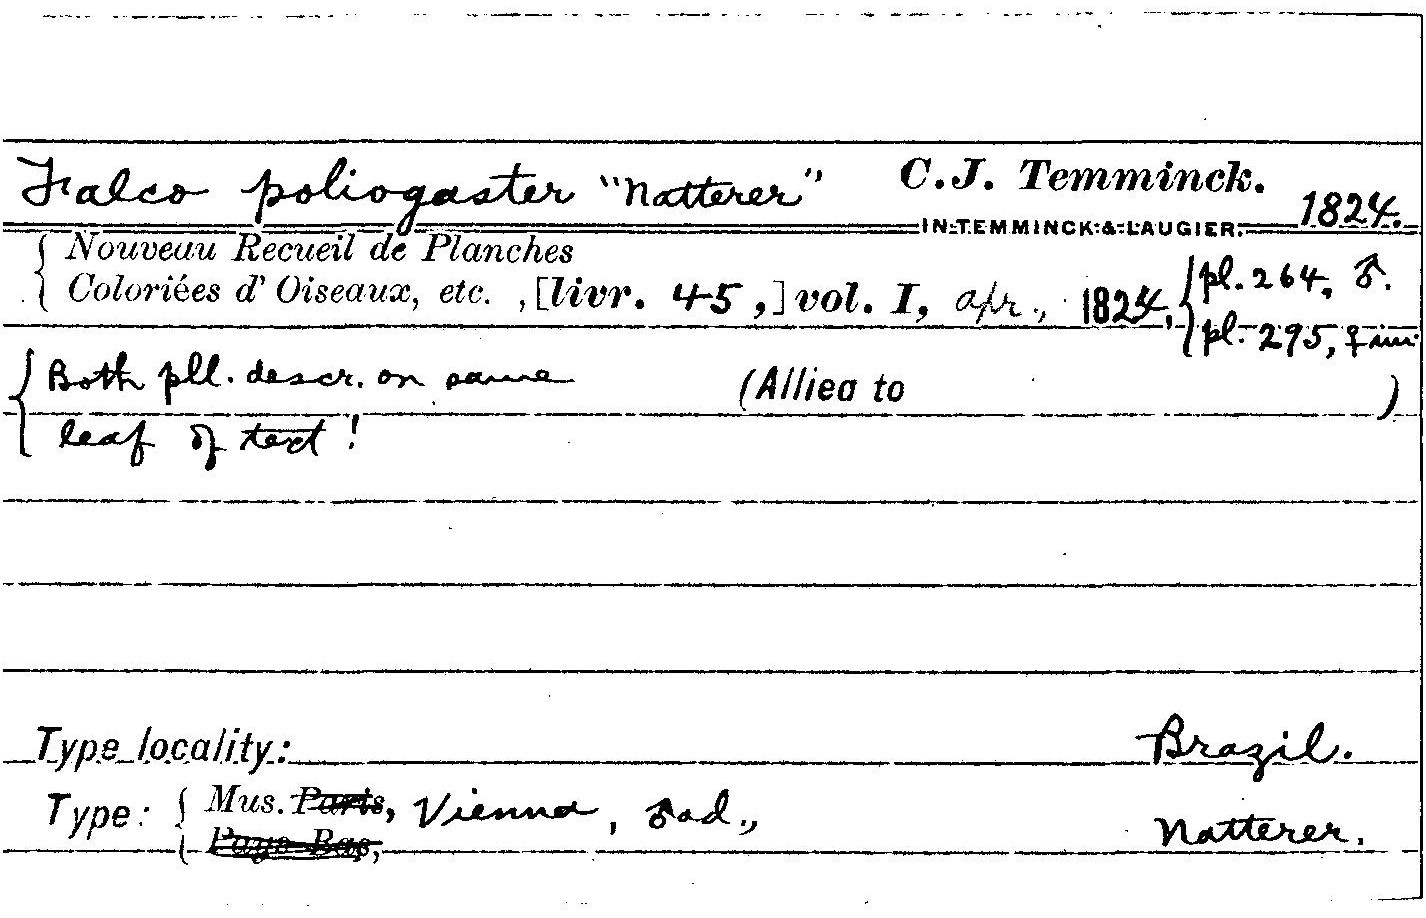 Falco poliogaster "Natterer" C. J. Temminck. 1824.
IN TEMMINCK & LAUGIER.
Nouveau Recueil de Planches
Coloriées d' Oiseaux, etc. , [livr. 45 ,] vol. I, apr., 1824, pl. 264, ♂.
pl. 295, ♀ im.
Both pll. descr. on same (Allied to )
leaf of text!
Type locality: Brazil.
Type: Mus. Paris, Vienna, ♂ ad., Natterer.
Pays-Bas,